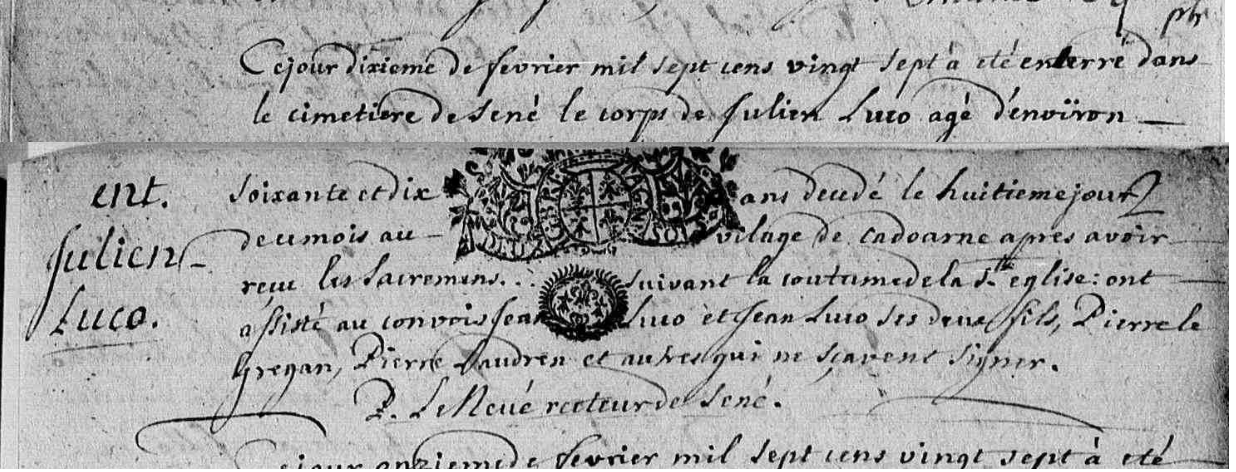 ptr
Cejour dixieme de fevrier mil sept cens vingt sept à eté enterré dans
le cimetiere de sené le corps de Julien Luco agé d'enviïron
ent.
Julien
Luco.
soixante et dix ans decedé le huitieme jour
de ce mois au vilage de cadoarne apres avoir
recu les sacremens. suivant la coutume de la Ste eglise: ont
assisté au convois Jean Luco et Jean Luco ses deux fils, Pierre le
gregan, Pierre Jaudren et autres qui ne sçavent signer.
P. Le Nevé recteur de sené.
Cejour onzieme de fevrier mil sept cens vingt sept à eté